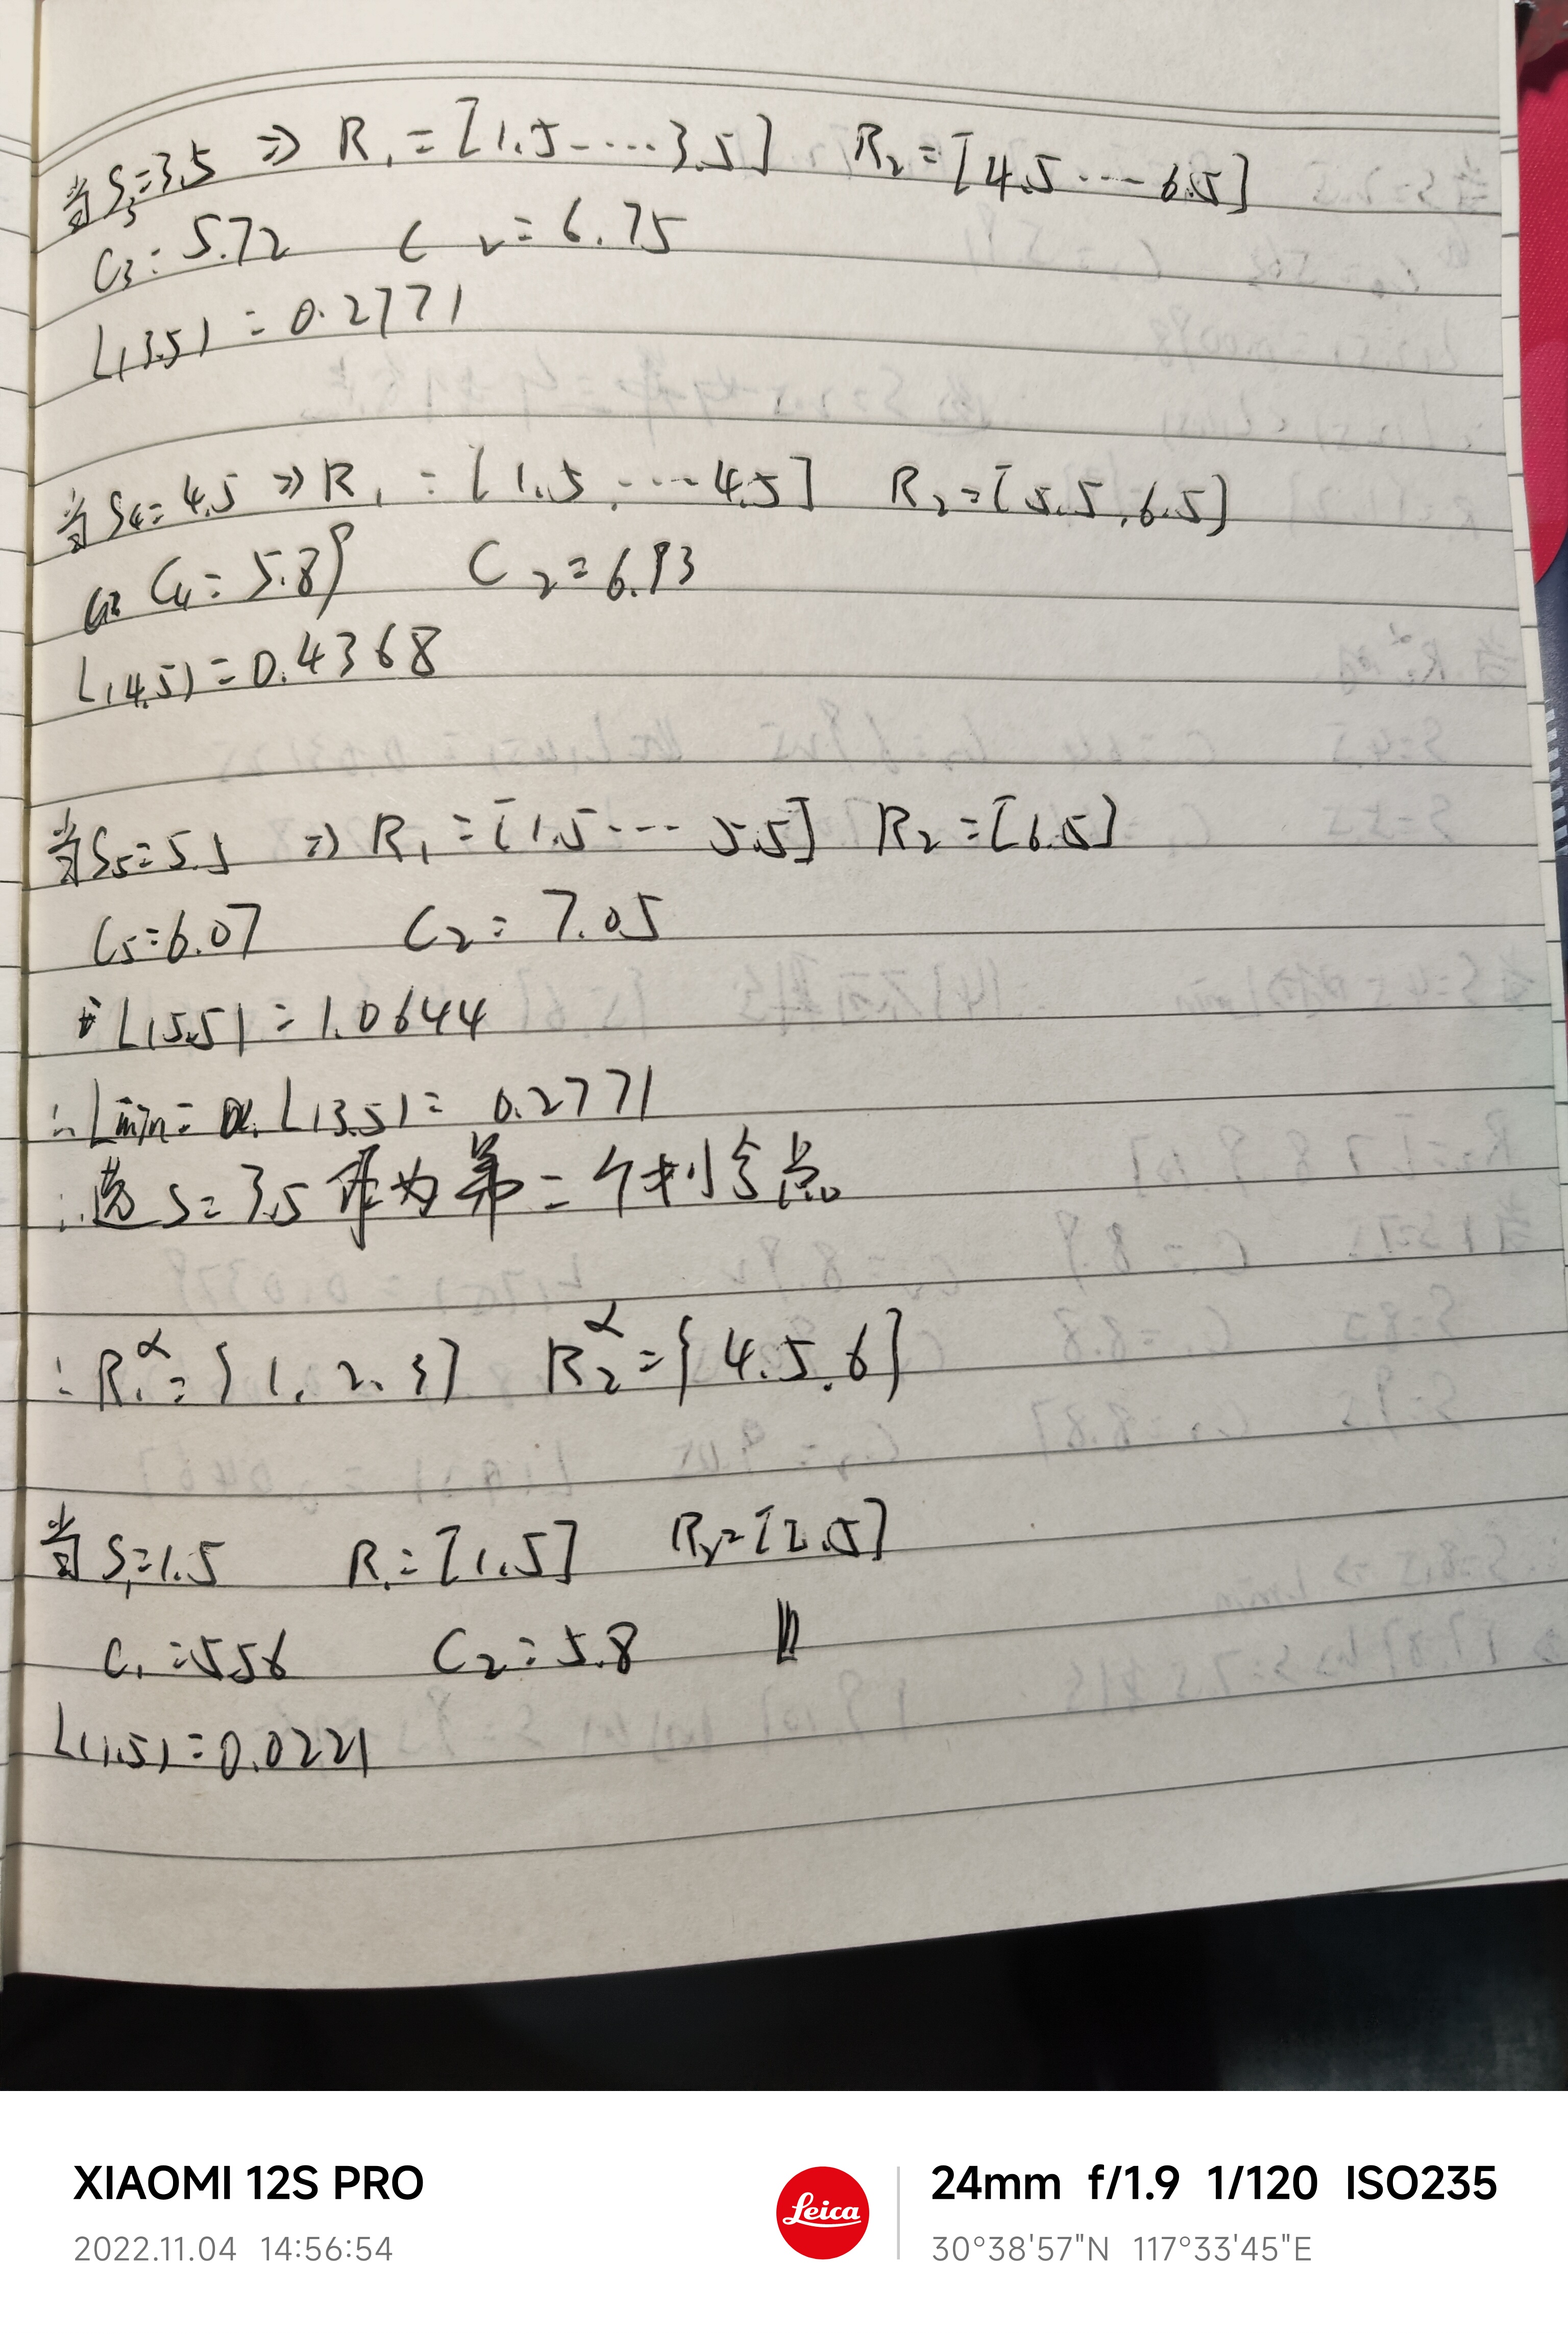 当S₃=3.5 ⇒ R₁=[1.5----3.5] R₂=[4.5---6.5]
C₃=5.72 C₂=6.75
L(3.5)=0.2771
当S₄=4.5 ⇒ R₁=[1.5,---4.5] R₂=[5.5,6.5]
C₄=5.89 C₂=6.93
L(4.5)=0.4368
当S₅=5.5 ⇒ R₁=[1.5---5.5] R₂=[6.5]
C₅=6.07 C₂=7.05
L(5.5)=1.0644
∴Lmin= L(3.5)=0.2771
∴选S=3.5作为第二个划分点
∴R₁^α={1,2,3} R₂^α={4.5.6}
当S₁=1.5 R₁=[1.5] R₂=[2.5]
C₁=5.56 C₂=5.8
L(1.5)=0.0221
XIAOMI 12S PRO
2022.11.04 14:56:54
Leica
24mm f/1.9 1/120 ISO235
30°38'57"N 117°33'45"E